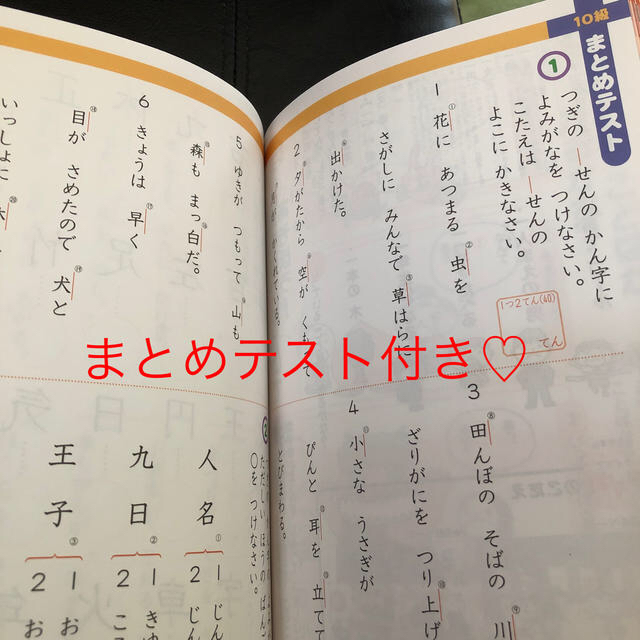 10級
まとめテスト
1
つぎの ―せんの かん字に
よみがなを つけなさい。
こたえは ―せんの
よこに かきなさい。
1つ2てん(40)
てん
1 ①花に あつまる ②虫を
さがしに みんなで ③草はらに
出かけた。
2 夕がたから 空が くもって
かくれている。
3 ⑧田んぼの そばの ⑨川
ざりがにを つり上げ
4 小さな うさぎが
ぴんと 耳を 立てて
とびまわる。
5 ゆきが つもって 山も
森も まっ白だ。
6 きょうは 早く
目が さめたので 犬と
いっしょに
○を つけなさい。
人名 ① 1 じん
2 じん
九日 ② 1 きゅ
2 ここ
王子 ③ 1 お
2 お
まとめテスト付き♡